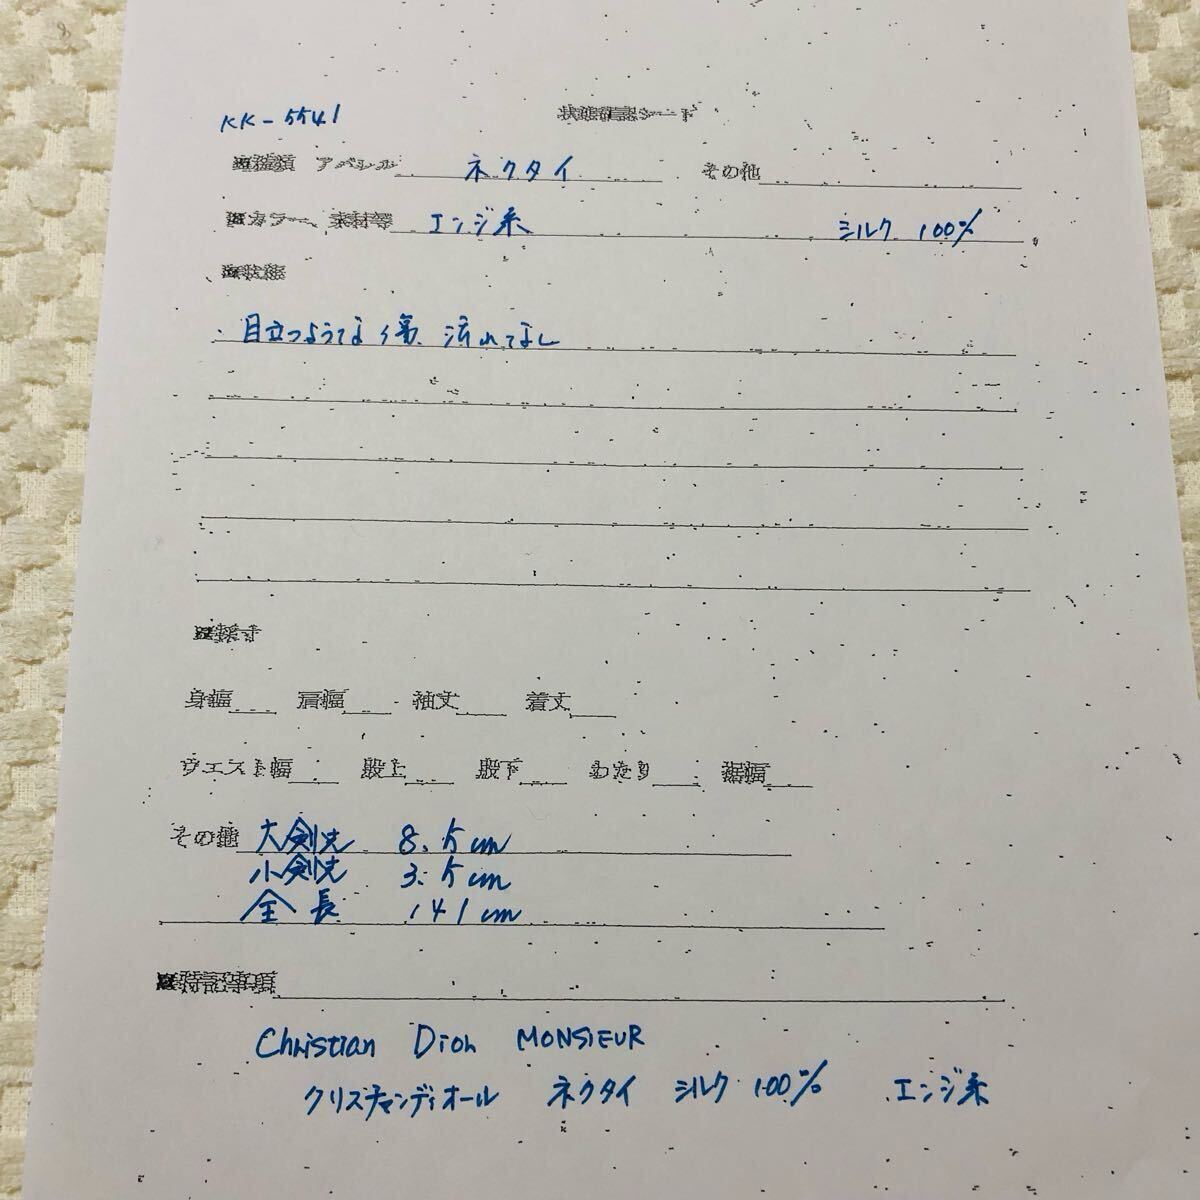 KK-5541
状態確認シート
※種類 アパレル ネクタイ その他
※カラー、素材等 エンジ系 シルク 100%
※状態
・目立つような傷、汚れてなし
※採寸
身幅 肩幅 袖丈 着丈
ウエスト幅 股上 股下 わたり 裾幅
その他 大剣先 8.5cm
小剣先 3.5cm
全長 141cm
※特記事項
Christian Dior MONSIEUR
クリスチャンディオール ネクタイ シルク 100% エンジ系